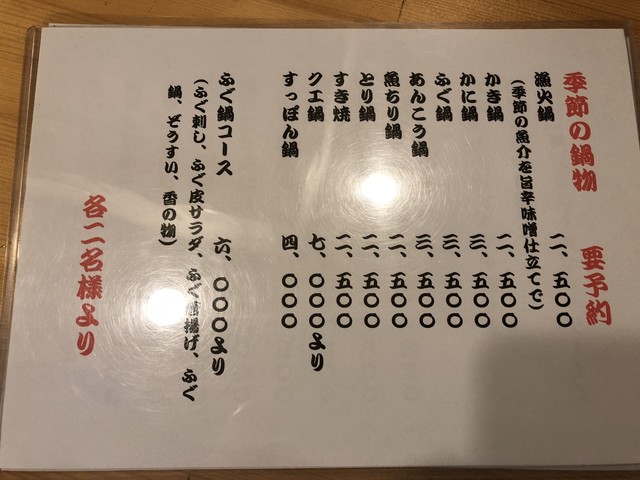 季節の鍋物 要予約
漁火鍋 二、五〇〇
(季節の魚介を旨辛味噌仕立てで)
かき鍋 二、五〇〇
かに鍋 三、五〇〇
ふぐ鍋 三、五〇〇
あんこう鍋 三、五〇〇
魚ちり鍋 二、五〇〇
とり鍋 二、五〇〇
すき焼 二、五〇〇
クエ鍋 七、〇〇〇より
すっぽん鍋 四、〇〇〇
ふぐ鍋コース 六、〇〇〇より
(ふぐ刺し、ふぐ皮サラダ、ふぐ揚げ、ふぐ
鍋、ぞうすい、香の物)
各二名様より